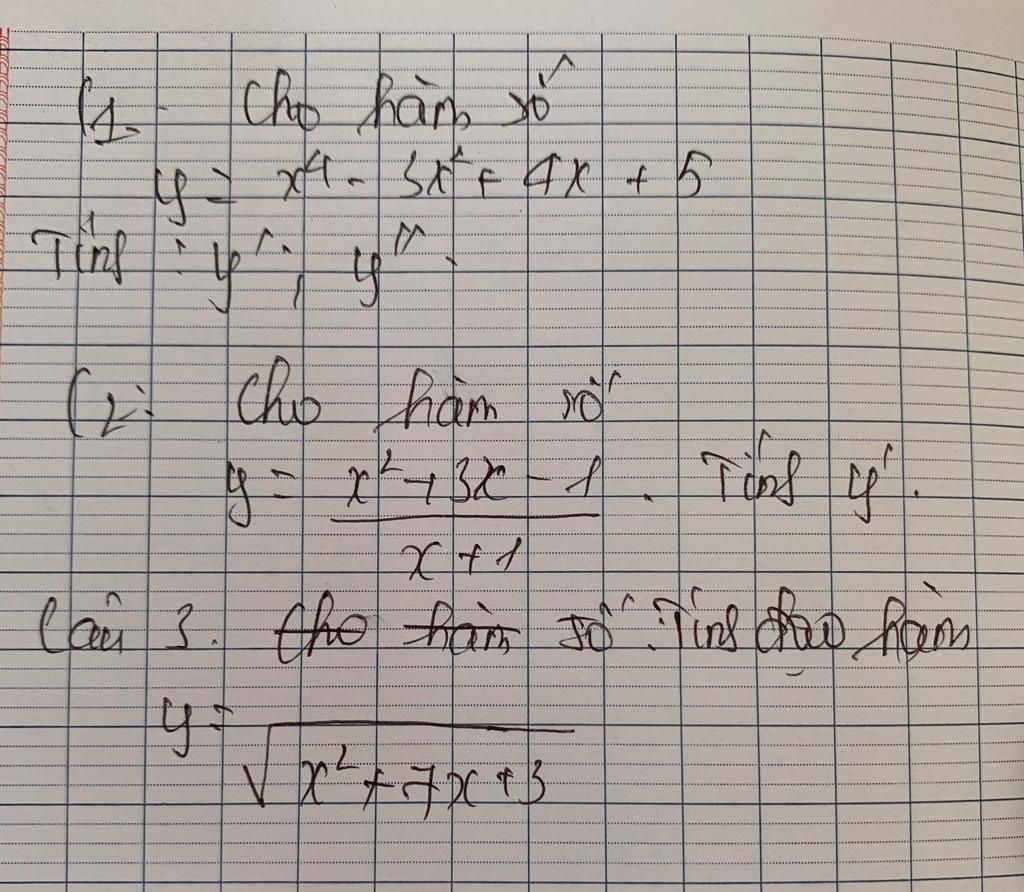 C1- Cho hàm số
y = x⁴ - 3x² + 4x + 5
Tính : y'; y''.
C2: Cho hàm số
y = (x² + 3x - 1)/(x + 1). Tính y'.
Câu 3. Cho hàm số. Tính đạo hàm
y = √(x² + 7x + 3)